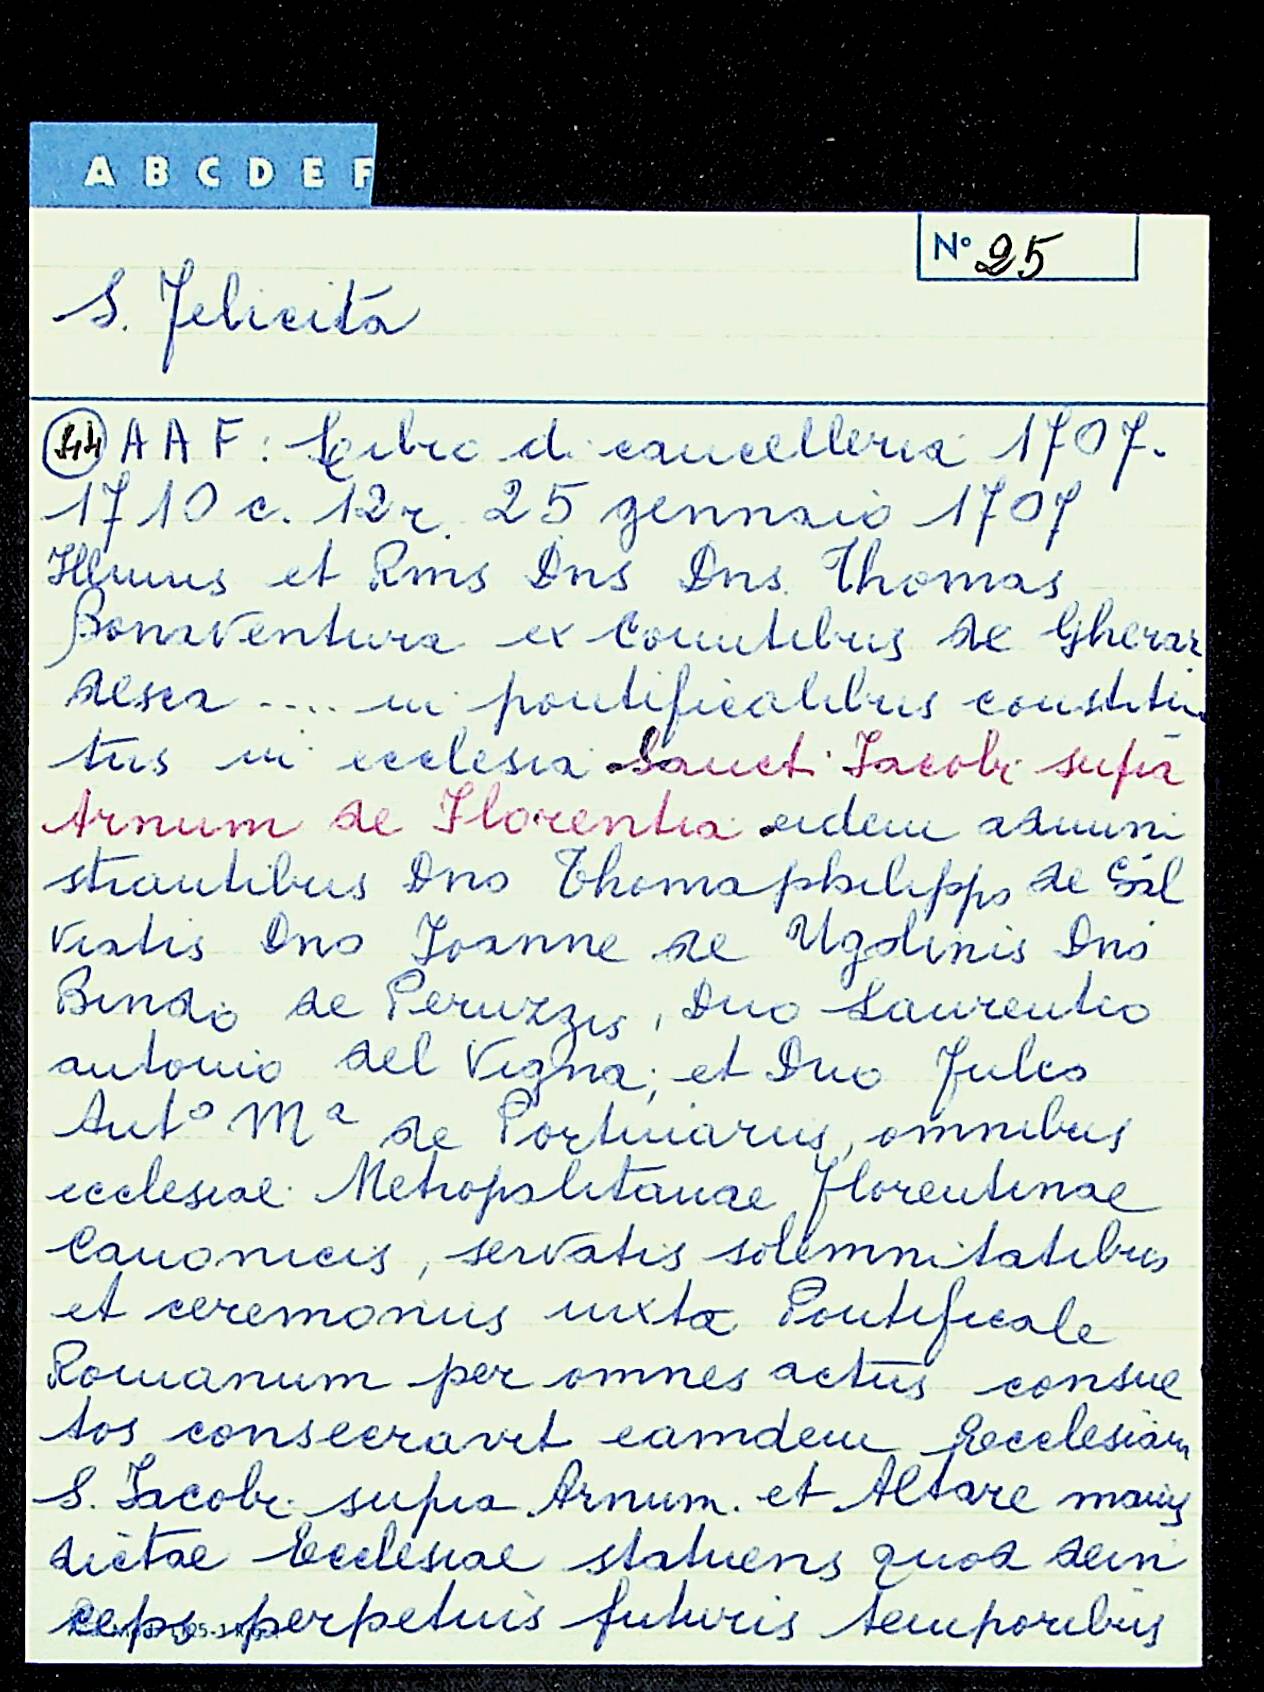 A B C D E F
N° 25
S. Felicita
44 A A F: Libro di cancelleria 1707-
1710 c. 12r. 25 gennaio 1707
Illmus et Rms Dns Dns. Thomas
Bonaventura ex Comitibus de Gherar
desca .... in pontificalibus constitu
tus in ecclesia Sancti Jacobi supra
Arnum de Florentia eidem admini
strantibus Dno Thomaphilippo de Sal
viatis Dno Joanne de Ugolinis Dno
Bindo de Peruzzis, Dno Laurentio
antonio del Vigna; et Dno Julio
Ant° Mª de Portinariis, omnibus
ecclesiae Metropolitanae Florentinae
Canonicis, servatis solemnitatibus
et ceremoniis iuxta Pontificale
Romanum per omnes actus consue
tos consecravit eamdem Ecclesiam
S. Jacobi supra Arnum. et Altare maius
dictae Ecclesiae statuens quod dein
ceps perpetuis futuris temporibus